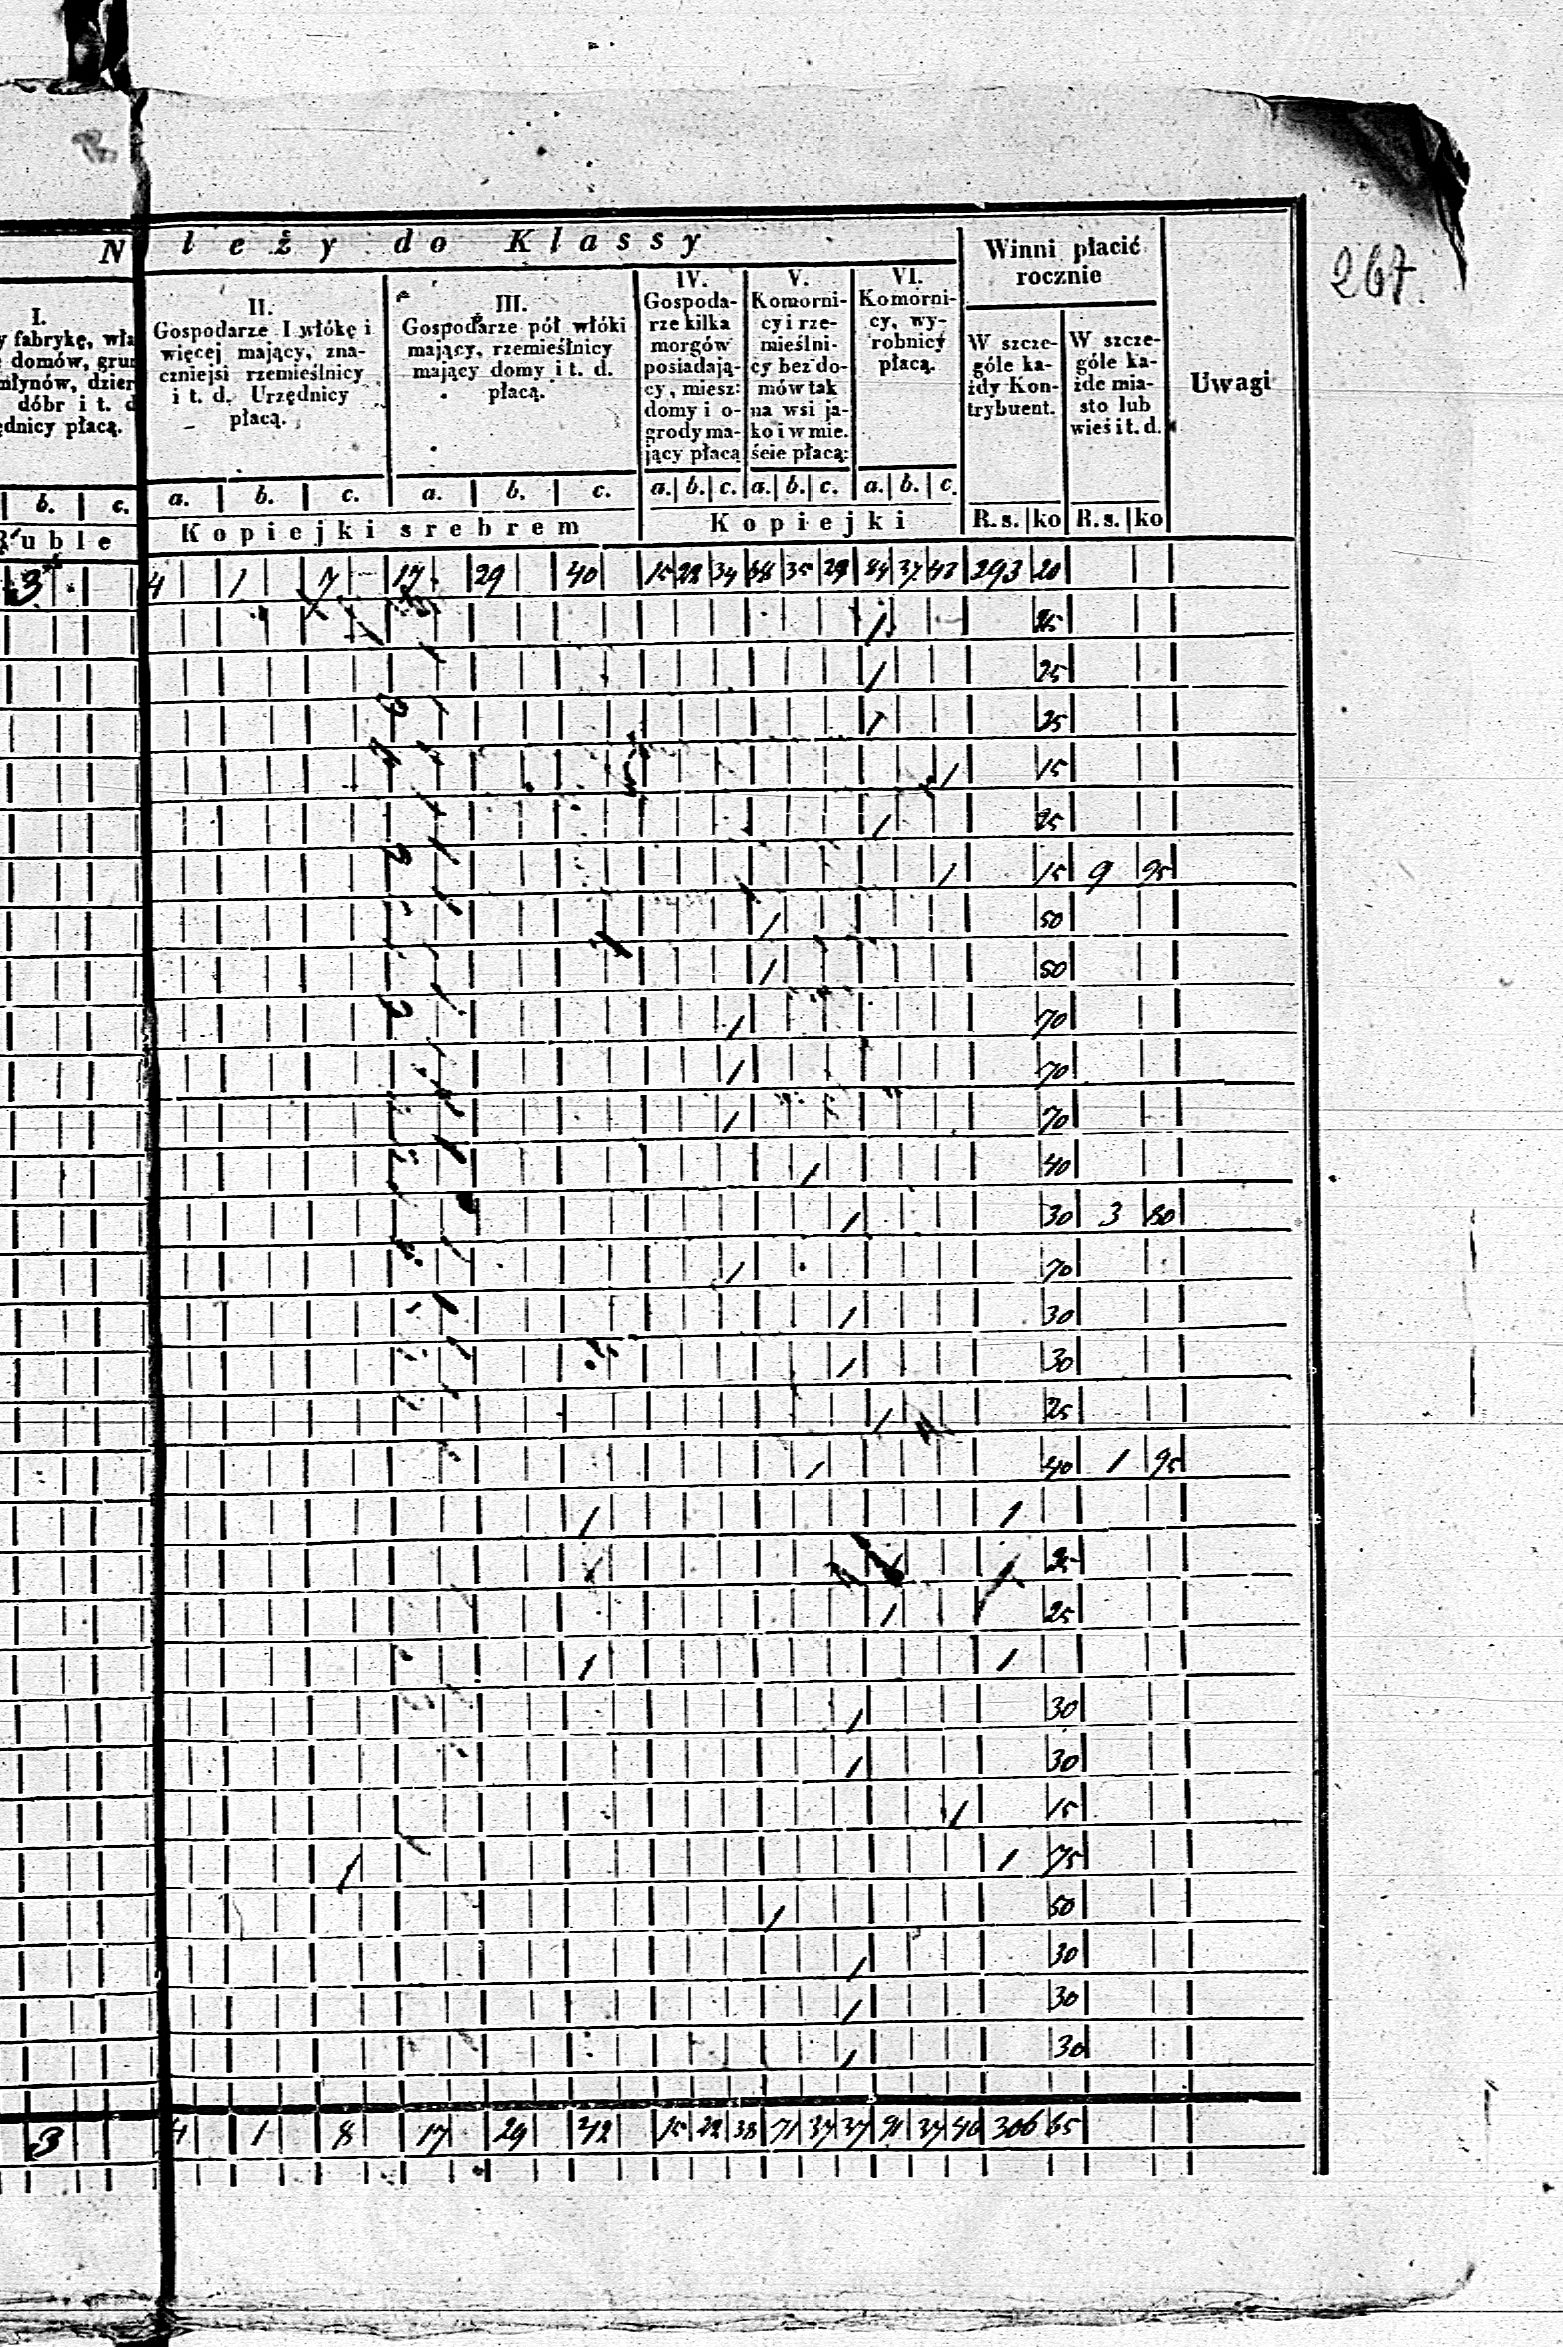 267.
N leży do Klassy
Winni płacić
rocznie
Uwagi
I.
y fabrykę, wła
domów, grun
młynów, dzier
dóbr i t. d
ędnicy płacą.
II.
Gospodarze I włókę i
więcej mający, zna-
czniejsi rzemieślnicy
i t. d. Urzędnicy
płacą.
III.
Gospodarze pół włóki
mający, rzemieślnicy
mający domy i t. d.
płacą.
IV.
Gospoda-
rze kilka
morgów
posiadają-
cy, miesz:
domy i o-
grody ma-
jący płacą
V.
Komorni-
cy i rze-
mieślni-
cy bez do-
mów tak
na wsi ja-
ko i w mie.
ście płacą:
VI.
Komorni-
cy, wy-
robnicy
płacą.
W szcze-
góle ka-
żdy Kon-
trybuent.
W szcze-
góle ka-
żde mia-
sto lub
wieś i t. d.
b. c. a. b. c. a. b. c. a. b. c. a. b. c. a. b. c. R.s. ko R.s. ko
Ruble Kopiejki srebrem Kopiejki
3 4 1 7 17 29 40 15 28 34 68 35 28 84 37 43 293 20
1 25
1 25
1 25
1 15
1 25
1 15 9 95
1 50
1 50
1 70
1 70
1 70
1 40
1 30 3 80
1 70
1 30
1 30
1 25
1 40 1 95
1 1
25
1 25
1 1
1 30
1 30
1 15
1 1 75
1 50
1 30
1 30
1 30
3 4 1 8 17 29 42 15 28 38 71 37 37 91 37 46 306 65